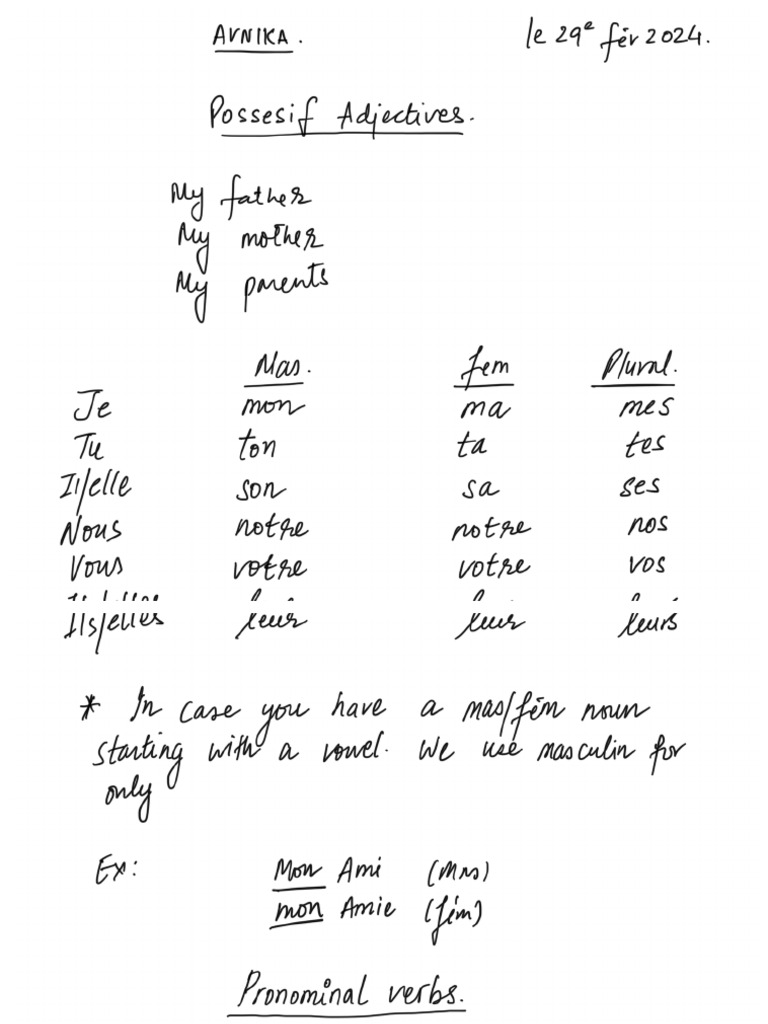 AVNIKA. le 29e fév 2024.
Possesif Adjectives.
My father
My mother
My parents
Mas. fem Plural.
Je mon ma mes
Tu ton ta tes
Il/elle son sa ses
Nous notre notre nos
Vous votre votre vos
Ils/elles leur leur leurs
* In case you have a mas/fém noun
starting with a vowel. We use masculin for
only
Ex: Mon Ami (Mas)
mon Amie (fém)
Pronominal verbs.